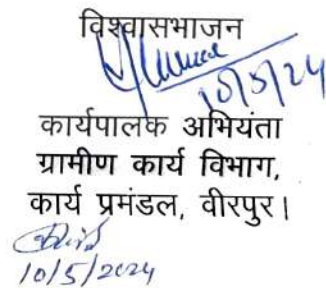 विश्वासभाजन
10/5/24
कार्यपालक अभियंता
ग्रामीण कार्य विभाग,
कार्य प्रमंडल, वीरपुर।
10/5/2024